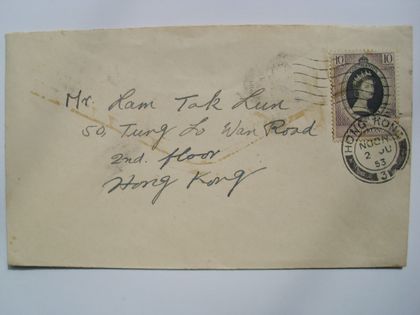 Mr. Lam Tak Lun
50, Tung Lo Wan Road
2nd. floor
Hong Kong
10 10
HONG KONG
NOON
2 JU
53
3